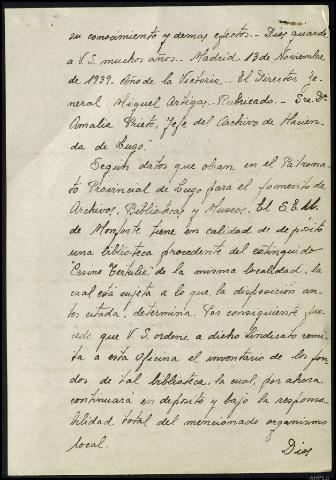 su conocimiento y demas efectos.- Dios guarde
a V.S. muchos años.- Madrid 13 de Noviembre
de 1939. Año de la Victoria.- El Director Ge-
neral. Miguel Artigas.- Rubricado.- Sra. Dª
Amalia Prieto, Jefe del Archivo de Hacien-
da de Lugo."
Segun datos que obran en el Patrona-
to Provincial de Lugo para el fomento de
Archivos, Bibliotecas y Museos, El S.E.M.
de Monforte tiene en calidad de depósito
una biblioteca procedente del extinguido
"Casino Tertulia" de la misma localidad, la
cual está sujeta a lo que, la disposición an-
tes citada, determina. Por consiguiente pro-
cede que V.S. ordene a dicho Sindicato remi-
ta a esta oficina el inventario de los fon-
dos de tal biblioteca, la cual, por ahora
continuará en depósito y bajo la responsa-
bilidad total del mencionado organismo
local.
Dios